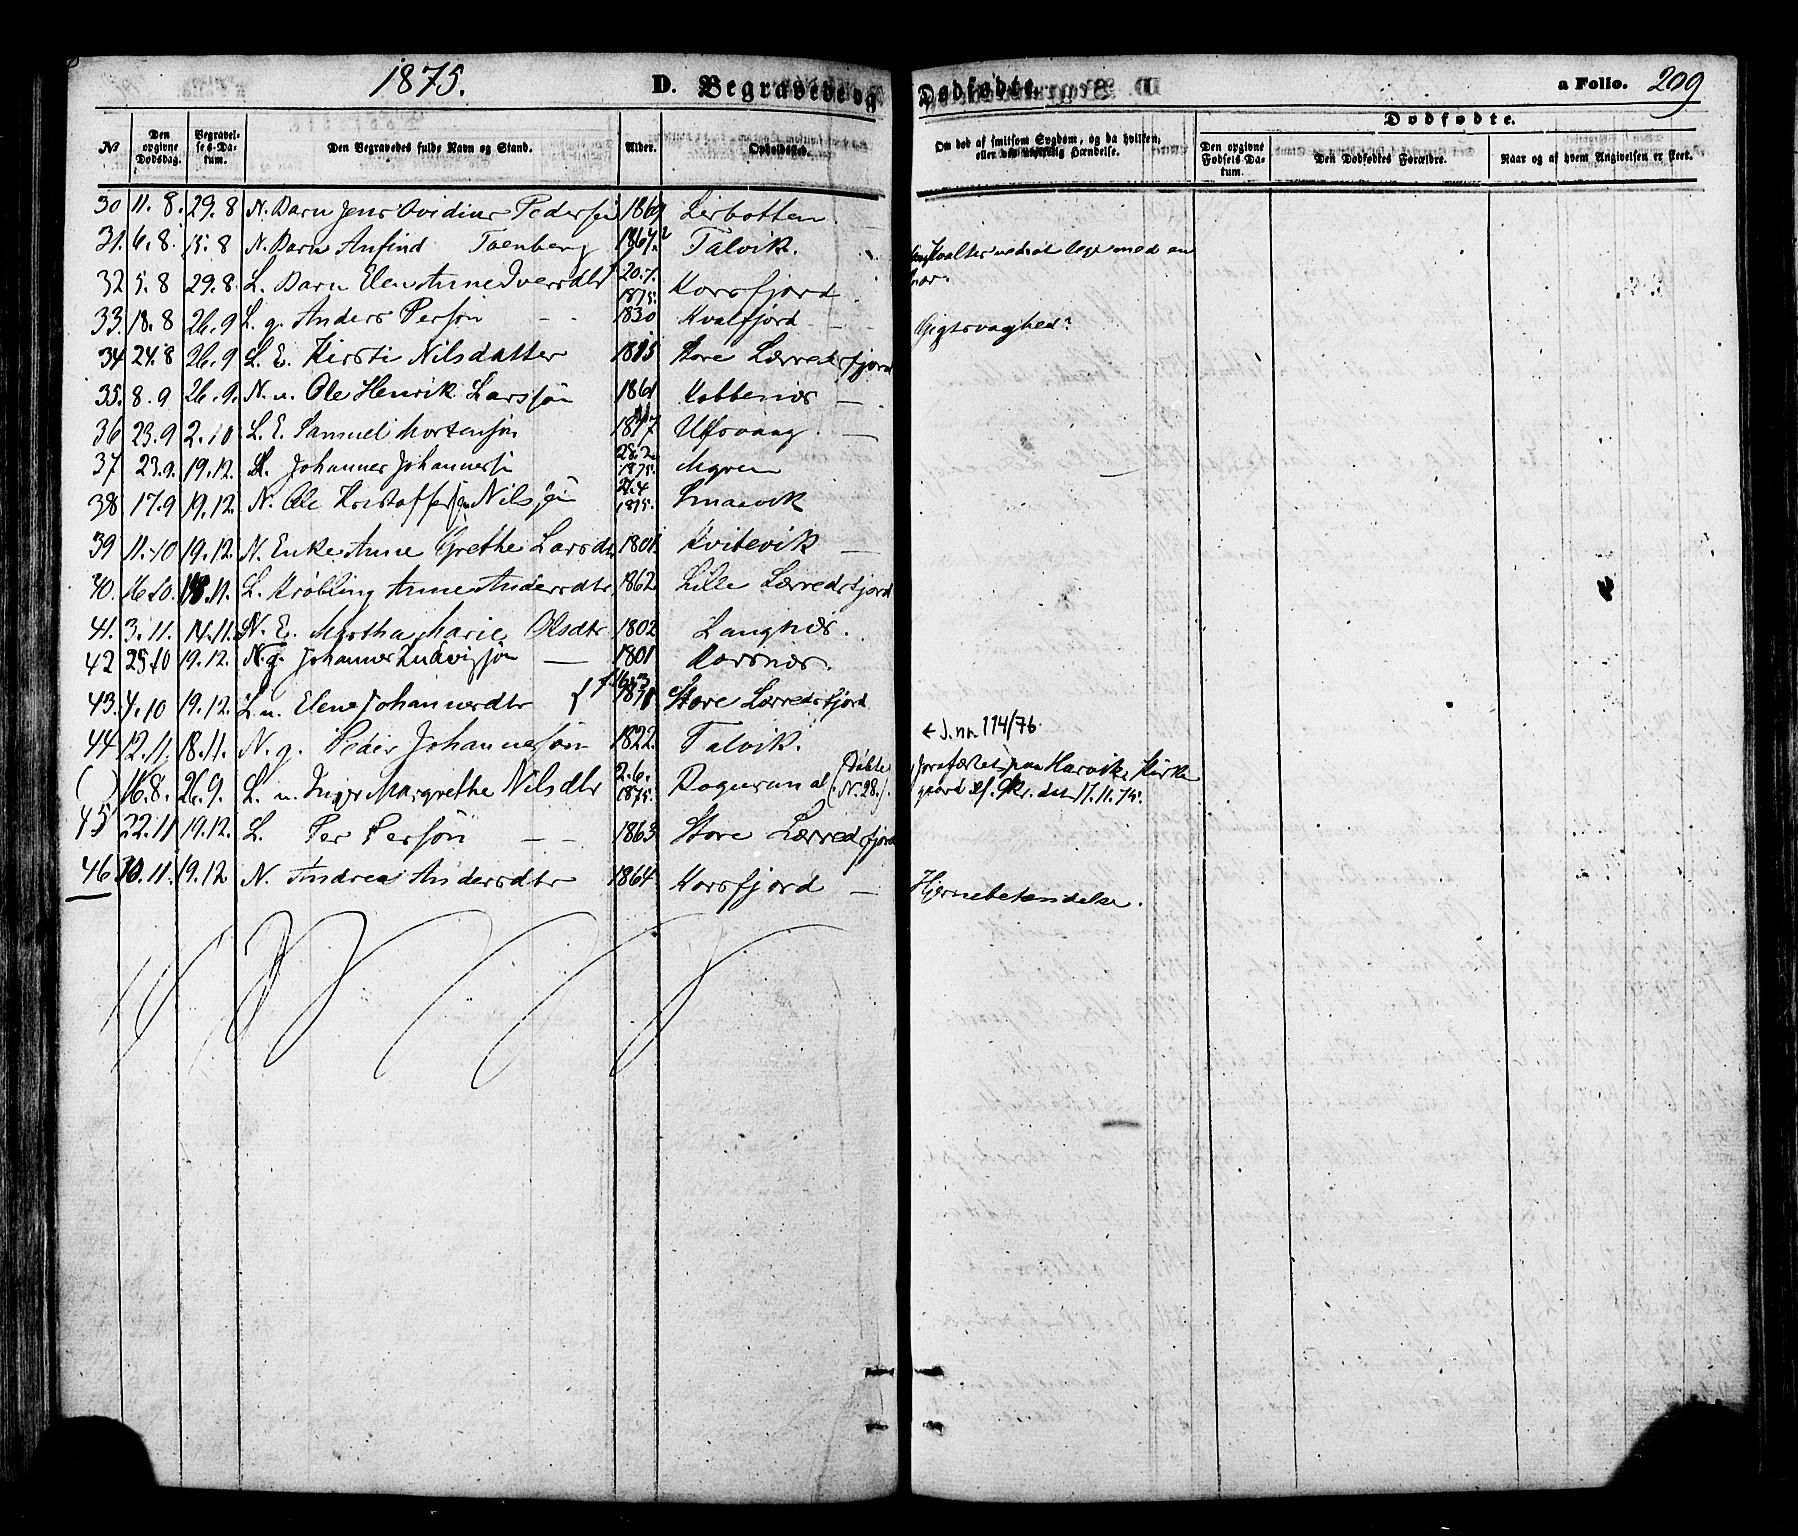 1875.
D. Begravede og Dødfødte.
a Folio. 209
No
Den opgivne Dødsdag.
Begravelses-Datum.
Den Begravedes fulde Navn og Stand.
Alder.
Opholdssted.
Om død af smitsom Sygdom, og da hvilken, eller Hændelse.
Dødfødte.
Den opgivne Fødsels-Datum.
Den Dødfødtes Forældre.
Naar og af hvem Angivelsen er skeet.
30 11.8. 29.8 N. Barn Jens Ovidius Pedersen 1869 Lerbotten.
31. 6.8. 15.8 N. Barn Anfind 1867 Talvik.
32 5.8 29.8. L. Barn Elen Anne Iversdtr 20.7. 1875. Korsfjord.
33. 18.8 26.9. L. g. Anders Persøn - - 1830 Kvalfjord - - Gigtsvaghed?
34 24.8 26.9 L. E. Kirsti Nilsdatter Store Lerredsfjord
35. 8.9 26.9. N. u. Ole Henrik Larssøn 1861 Kobbenes —
36 23.9 2.10 L. E. Samuel Mortensøn —
37 23.9. 19.12. L. Johannes 1875.
38 17.9 19.12. N. Ole Kristoffer Nilssøn 27.4 1875. Smaavik
39 11.10 19.12. N. Enke Anne Grethe Larsdtr 1801. Kvitevik —
40. 16.10. L. Anne Andersdtr. 1862 Lille Lerredsfjord
41. 3.11. 14.11. N. E. Martha Marie Olsdtr 1802 Langnes.
42 25.10 19.12. N. g. Johannes Ludvigsøn — 1801 Korsnes.
43. 4.10 19.12. L. u. Elene Johannesdtr Store Lerredsfjord
44 12.11 18.11. N. g. Peder Johannessøn 1822. Talvik. ← J. nr. 114/76.
( ) 16.8. 26.9. L. u. Inger Margrethe Nilsdtr 2.6. 1875. Rognsund (N. 28.). Kirkegaard cf. Skr. det 17.11.75.
45 22.11 19.12. L. Per Persøn - - 1863 Store Lerredsfjord
46 30.11. 19.12 N. Andrea Andersdtr 1864. Korsfjord — Hjernebetændelse.